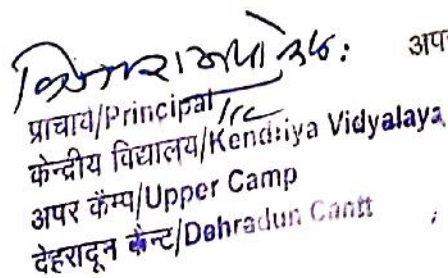 अपर
प्राचार्य/Principal I/C
केन्द्रीय विद्यालय/Kendriya Vidyalaya
अपर कैम्प/Upper Camp
देहरादून कैन्ट/Dehradun Cantt